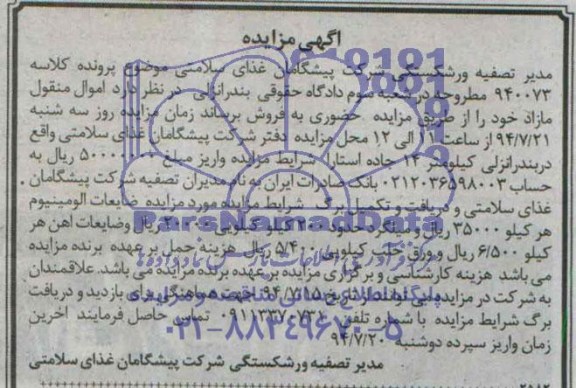 آگهی مزایده
مدیر تصفیه ورشکستگی شرکت پیشگامان غذای سلامتی موضوع پرونده کلاسه
۹۴۰۰۷۳ مطروحه در شعبه سوم دادگاه حقوقی بندرانزلی در نظر دارد اموال منقول
مازاد خود را از طریق مزایده حضوری به فروش برساند زمان مزایده روز سه شنبه
۹۴/۷/۲۱ از ساعت ۱۱ الی ۱۲ محل مزایده دفتر شرکت پیشگامان غذای سلامتی واقع
دربندرانزلی کیلومتر ۱۴ جاده آستارا شرایط مزایده واریز مبلغ ریال به
حساب ۰۲۱۲۰۳۶۵۹۸۰۰۳ بانک صادرات ایران به نام مدیران تصفیه شرکت پیشگامان
غذای سلامتی و دریافت و تکمیل برگ شرایط مزایده مورد مزایده ضایعات الومینیوم
هر کیلو ۳۵۰۰۰ ریال و میلگرد حدود کیلو کیلویی ریال وضایعات اهن هر
کیلو ۶/۵۰۰ ریال و ورق حلب کیلویی ۵/۴۰۰ ریال هزینه حمل بر عهده برنده مزایده
می باشد هزینه کارشناسی و برگزاری مزایده بر عهده برنده مزایده می باشد. علاقمندان
به شرکت در مزایده می توانند از تاریخ ۹۴/۷/۱۵ جهت هماهنگی برای بازدید و دریافت
برگ شرایط مزایده با شماره تلفن ۰۹۱۱۳۳۷۰۷۳۱ تماس حاصل فرمایند آخرین
زمان واریز سپرده دوشنبه ۹۴/۷/۲۰
مدیر تصفیه ورشکستگی شرکت پیشگامان غذای سلامتی
ParsNamadData
پایگاه اطلاع رسانی مناقصه و مزایده
۰۲۱-۸۸۳۴۹۶۷۰-۵